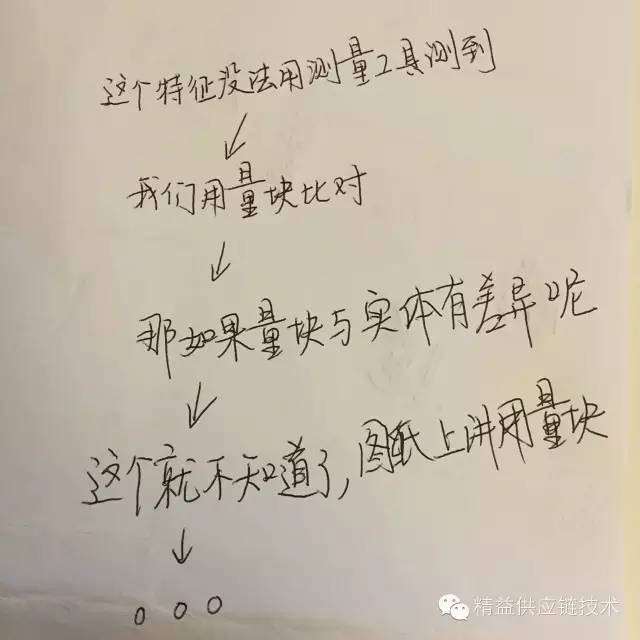 这个特征没法用测量工具测到
↓
我们用量块比对
↓
那如果量块与实体有差异呢
↓
这个就不知道了,图纸上讲用量块
↓
。。。
精益供应链技术